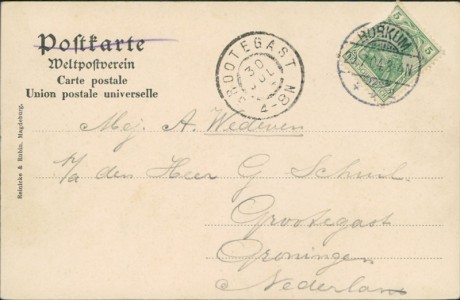 Postkarte
Weltpostverein
Carte postale
Union postale universelle
GROOTEGAST
4-8N
BORKUM
5 5
Reinicke & Rubin, Magdeburg.
Mej. A. Wedeven
p/a den Heer G
Grootegast
Groningen
Nederland